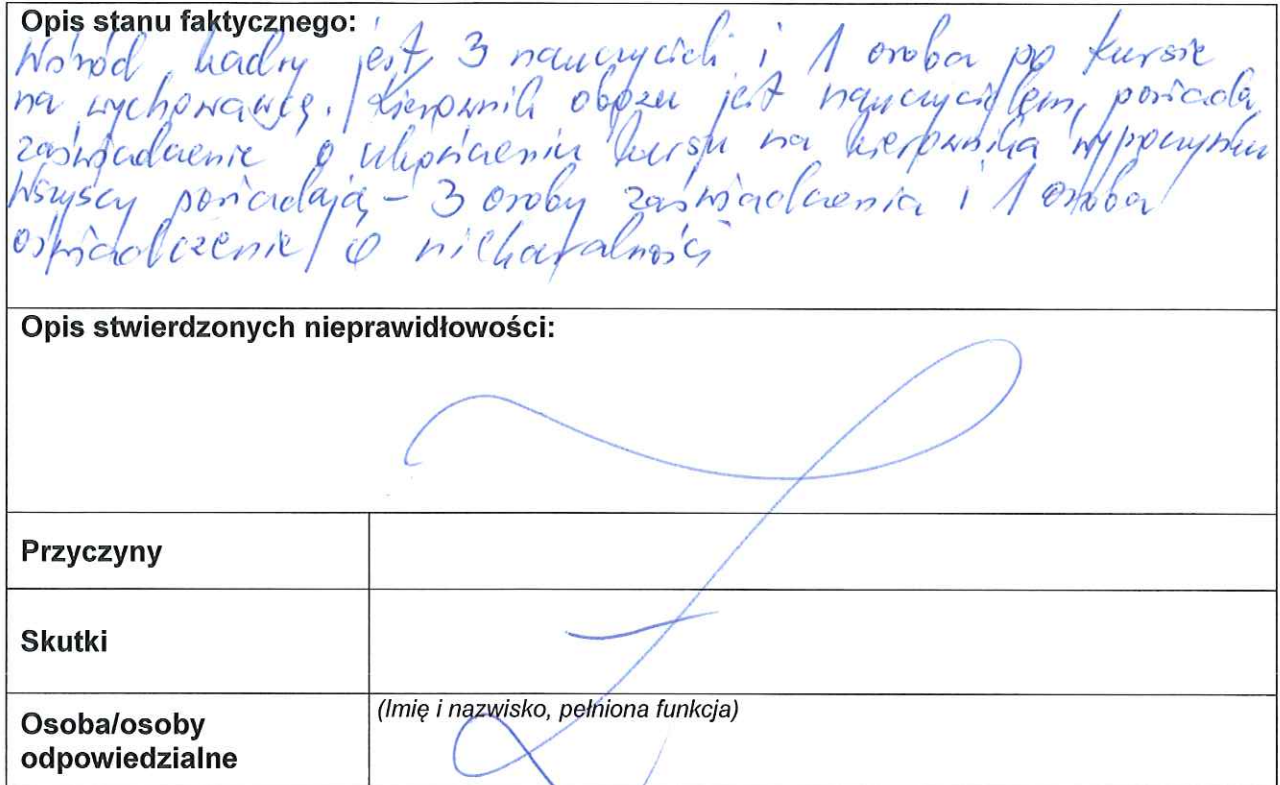 Opis stanu faktycznego:
Wśród kadry jest 3 nauczycieli i 1 osoba po kursie
na wychowawcę. Kierownik obozu jest nauczycielem, posiada
zaświadczenie o ukończeniu kursu na kierownika wypoczynku
Wszyscy posiadają - 3 osoby zaświadczenia i 1 osoba
oświadczenie o niekaralności
Opis stwierdzonych nieprawidłowości:
Przyczyny
Skutki
Osoba/osoby
odpowiedzialne
(Imię i nazwisko, pełniona funkcja)